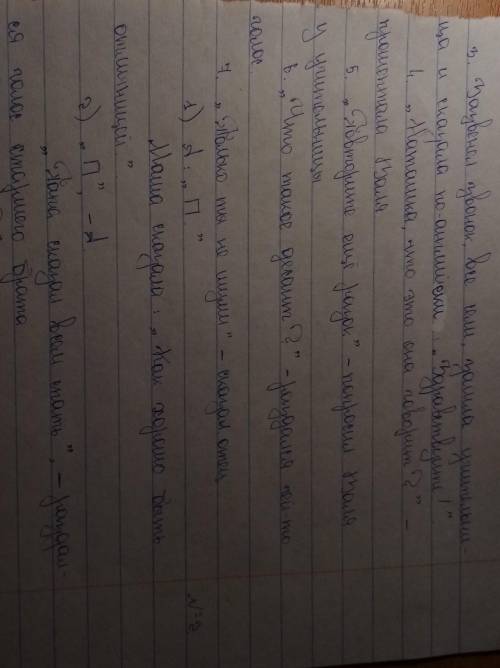 3. Зазвенел звонок, все сели, зашла учительни-
ца и сказала по-английски: „Здравствуйте!"
4. „Наташка, что это она говорит?" –
прошептала Валя
5. „Повторите ещё разок" – попросил Валя
у учительницы
6. „Что такое десант?" – раздался чей-то
голос
7. „Только ты не шуми" – сказал отец
№2
1) А: „П"
Маша сказала: „Как хорошо быть
отличницей"
2) „П", – а
„Папа сказал всем спать", – раздал-
ся голос старшего брата